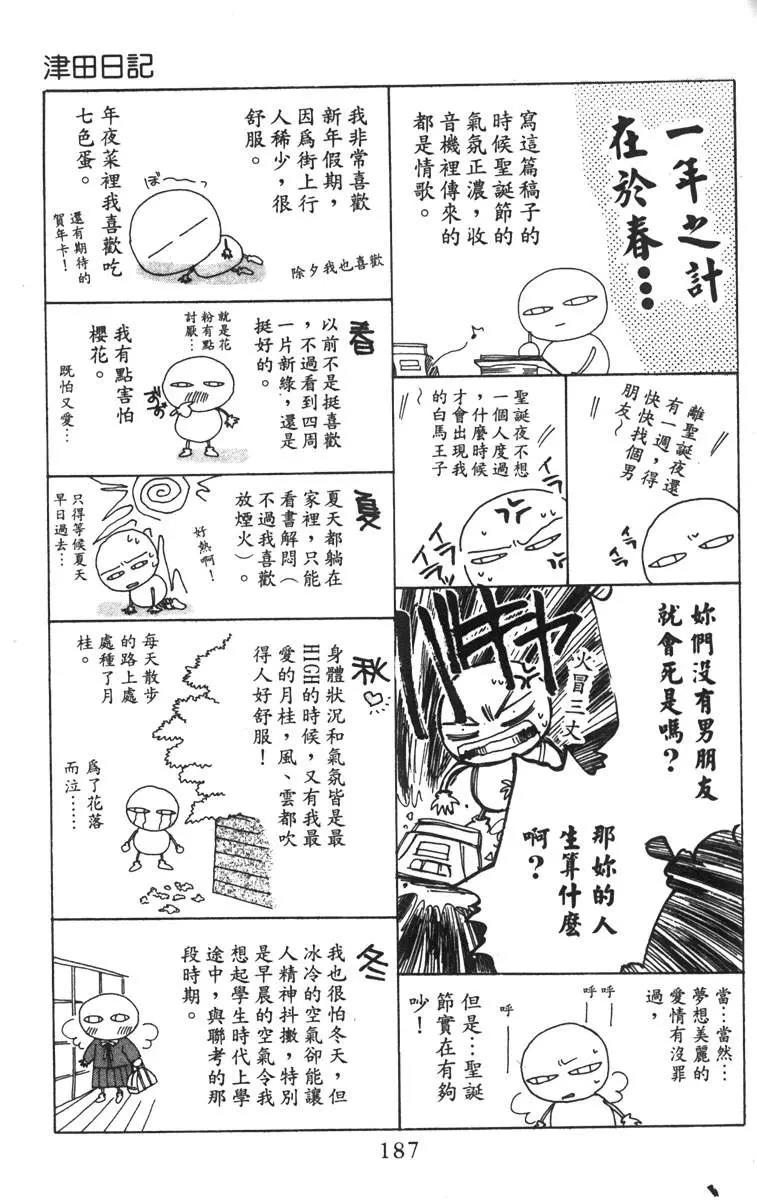 津田日記
一年之計
在於春…
寫這篇稿子的
時候聖誕節的
氣氛正濃，收
音機裡傳來的
都是情歌。
離聖誕夜還
有一週，得
快快找個男
朋友～
聖誕夜不想
一個人度過
，什麼時候
才會出現我
的白馬王子
～
イラ
イラ
妳們沒有男朋友
就會死是嗎？
火冒三丈
那妳的人
生算什麼
啊？
當…當然…
夢想美麗的
愛情有沒罪
過，
呼
呼
呼
但是…聖誕
節實在有夠
吵！
我非常喜歡
新年假期，
因為街上行
人稀少，很
舒服。
除夕我也喜歡
ぼ～～
年夜菜裡我喜歡吃
七色蛋。
還有期待的
賀年卡！
春
以前不是挺喜歡
，不過看到四周
一片新綠，還是
挺好的。
就是花
粉有點
討厭…
ずずっ
我有點害怕
櫻花。
既怕又愛…
夏
夏天都躺在
家裡，只能
看書解悶（
不過我喜歡
放煙火）。
好熱啊！
只得等候夏天
早日過去…
秋♡
身體狀況和氣氛皆是最
HIGH的時候，又有我最
愛的月桂，風、雲都吹
得人好舒服！
每天散步
的路上處
處種了月
桂。
為了花落
而泣……
冬
我也很怕冬天，但
冰冷的空氣卻能讓
人精神抖擻，特別
是早晨的空氣令我
想起學生時代上學
途中，與聯考的那
段時期。
187